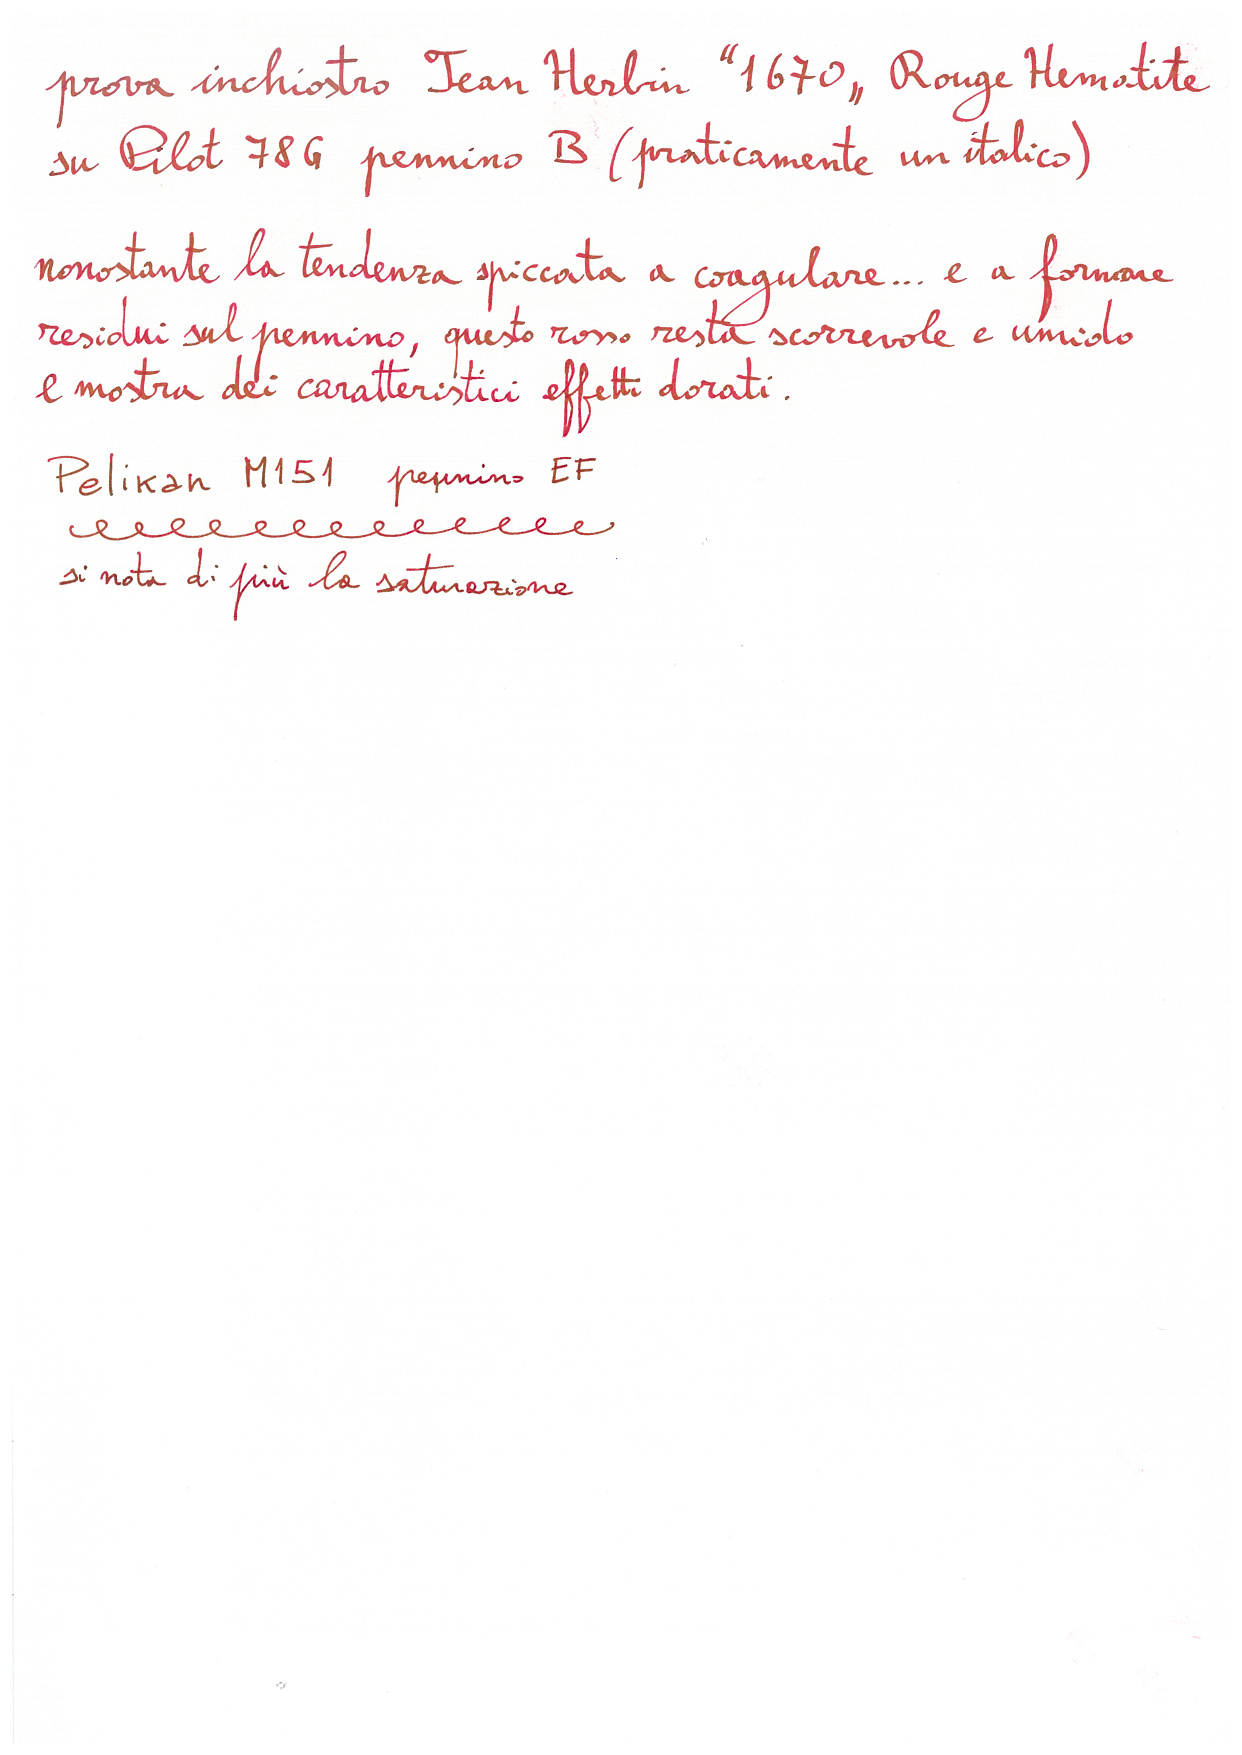 prova inchiostro Jean Herbin “1670„ Rouge Hematite
su Pilot 78G pennino B (praticamente un italico)
nonostante la tendenza spiccata a coagulare... e a formare
residui sul pennino, questo rosso resta scorrevole e umido
e mostra dei caratteristici effetti dorati.
Pelikan M151 pennino EF
si nota di più la saturazione